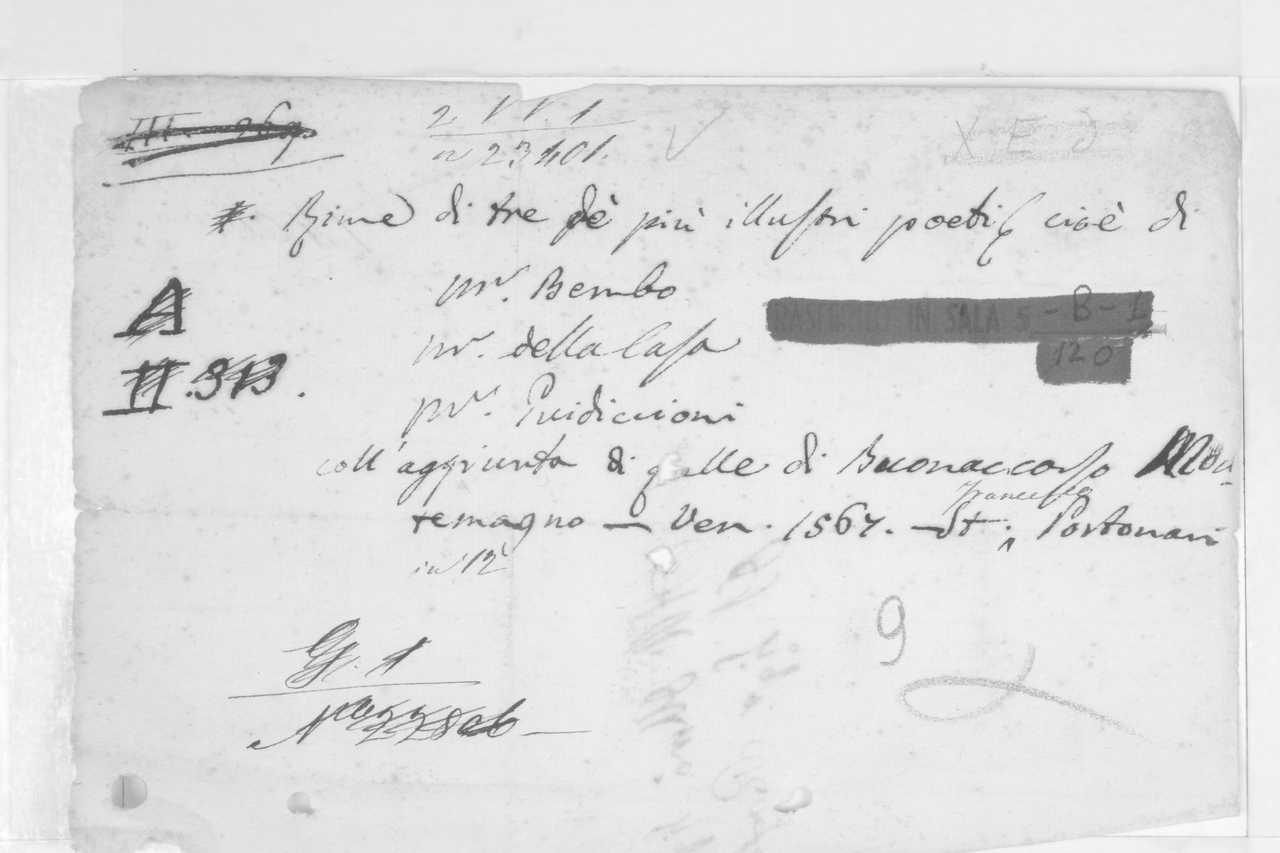 III. 
2. VI. 1
n 23401.
X E J
Rime di tre dè più illustri poeti, cioè di
Mr. Bembo
Mr. della Casa
Mr. Guidiccioni
coll'aggiunta di quelle di Buonaccorso Mon-
temagno — Ven. 1567. — St. Francesco Portonari
in 12°
A
II. 313.
TRASFERITO IN SALA 5 - B - 1
120
9
G. 1